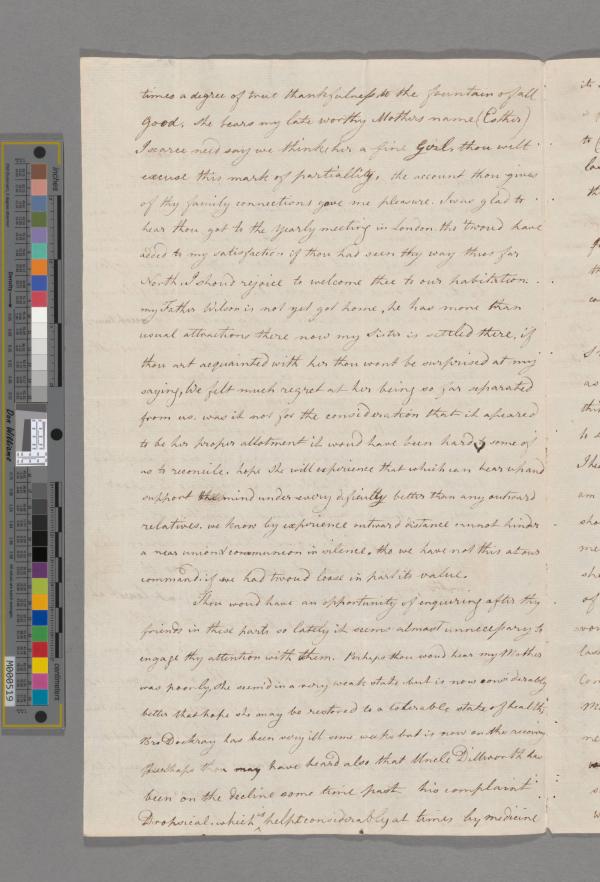 times a degree of true thankfulness to the fountain of all
good. she bears my late worthy Mothers name (Esther)
I scarce need say we think her a fine Girl, thou wilt
excuse this mark of partiallity, the account thou gives
of thy family connections gave me pleasure. I was glad to
hear thou got to the yearly meeting in London tho twould have
added to my satisfaction if thou had seen thy way thus far
North, I shou'd rejoice to welcome thee to our habitation.
my Father Wilson is not yet got home, he has more than
usual attractions there now my Sister is settled there, if
thou art acquainted with her thou wont be surprised at my
saying, We felt much regret at her being so far separated
from us. was it not for the consideration that it apeared
to be her proper allotment it woud have been hard to some of
us to reconcile. hope she will experience that which can bear up and
support the mind under every dificulty better than any outward
relatives. we know by experience outward distance cannot hinder
a near union & communion in silence. tho we have not this at our
command; if we had twoud loose in part its value.
Thou woud have an opportunity of enquiring after thy
friends in these parts so lately it seems almost unnecessary to
engage thy attention with them. Perhaps thou woud hear my Mother
was poorly, she seem'd in a very weak state but is now considerably
better that hope she may be restored to a tolerable state of health
Bro Dockray has been very ill some weeks but is now on the recovery
perhaps thou may have heard also that Uncle Dillworth has
been on the decline some time past his complaint
Dropsical. which is helpt considerably at times by medicine
inches
centimeters
Density
Don Williams
M000519